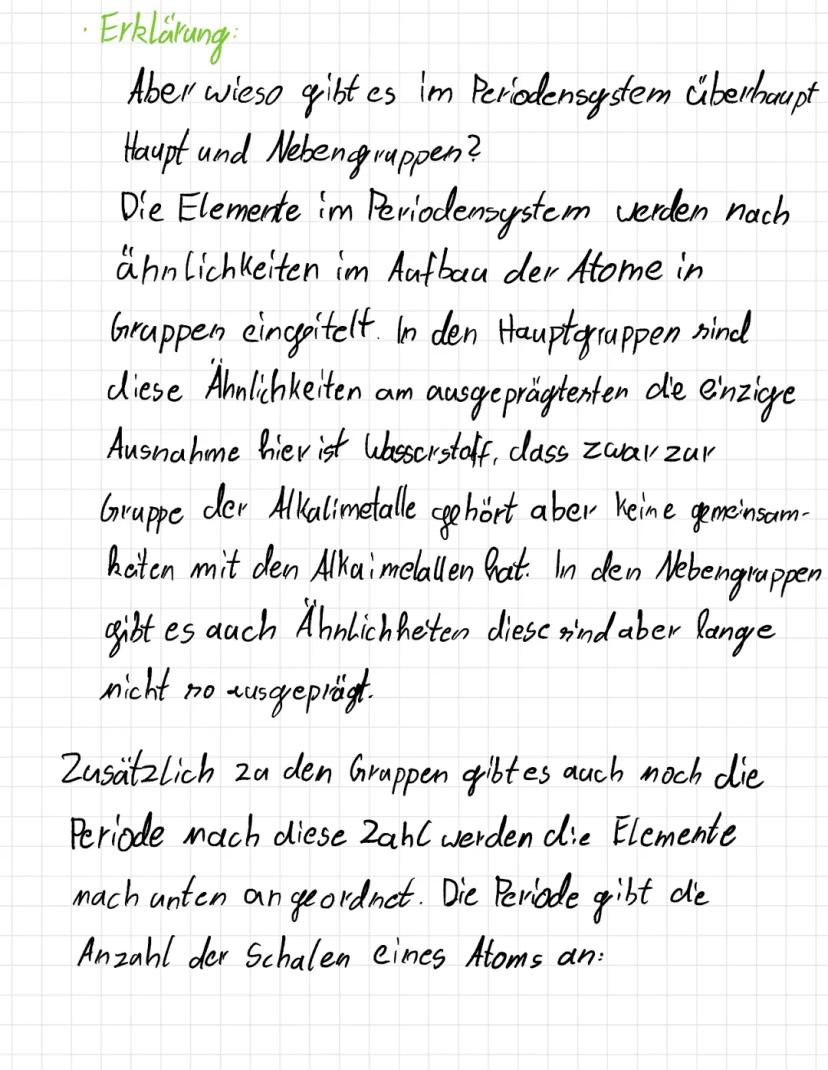 · Erklärung:
Aber wieso gibt es im Periodensystem überhaupt
Haupt und Nebengruppen?
Die Elemente im Periodensystem werden nach
ähnlichkeiten im Aufbau der Atome in
Gruppen eingeitelt. In den Hauptgruppen sind
diese Ähnlichkeiten am ausgeprägtesten die einzige
Ausnahme hier ist Wasserstoff, dass zwar zur
Gruppe der Alkalimetalle gehört aber keine gemeinsam-
keiten mit den Alkaimetallen hat. In den Nebengruppen
gibt es auch Ähnlichkeiten diese sind aber lange
nicht so ausgeprägt.
Zusätzlich zu den Gruppen gibt es auch noch die
Periode nach diese Zahl werden die Elemente
nach unten angeordnet. Die Periode gibt die
Anzahl der Schalen eines Atoms an: